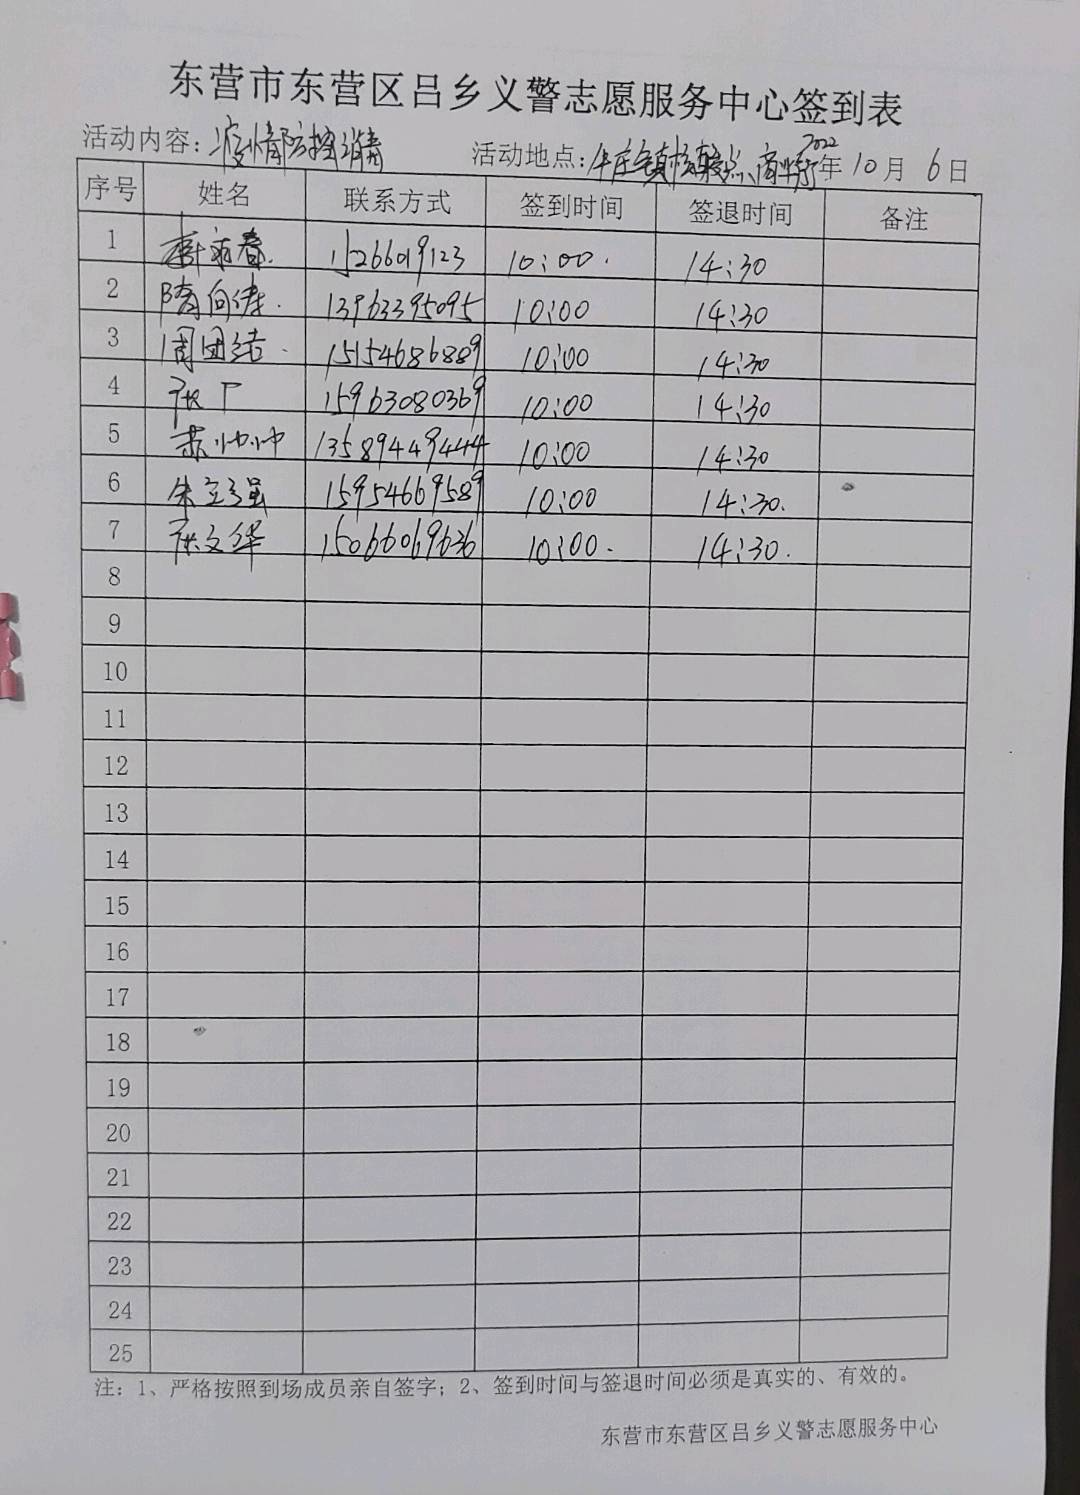 东营市东营区吕乡义警志愿服务中心签到表
活动内容:疫情防控消毒 活动地点:牛庄镇 2022年10月6日
序号 姓名 联系方式 签到时间 签退时间 备注
1 15266019123 10:00. 14:30
2 隋向 13963395095 10:00 14:30
3 周团结. 15154686889 10:00 14:30
4 15963080369 10:00 14:30
5 苏帅帅 13589449444 10:00 14:30
6 朱立强 15954669589 10:00 14:30.
7 张文华 15066069636 10:00. 14:30.
8
9
10
11
12
13
14
15
16
17
18
19
20
21
22
23
24
25
注:1、严格按照到场成员亲自签字;2、签到时间与签退时间必须是真实的、有效的。
东营市东营区吕乡义警志愿服务中心